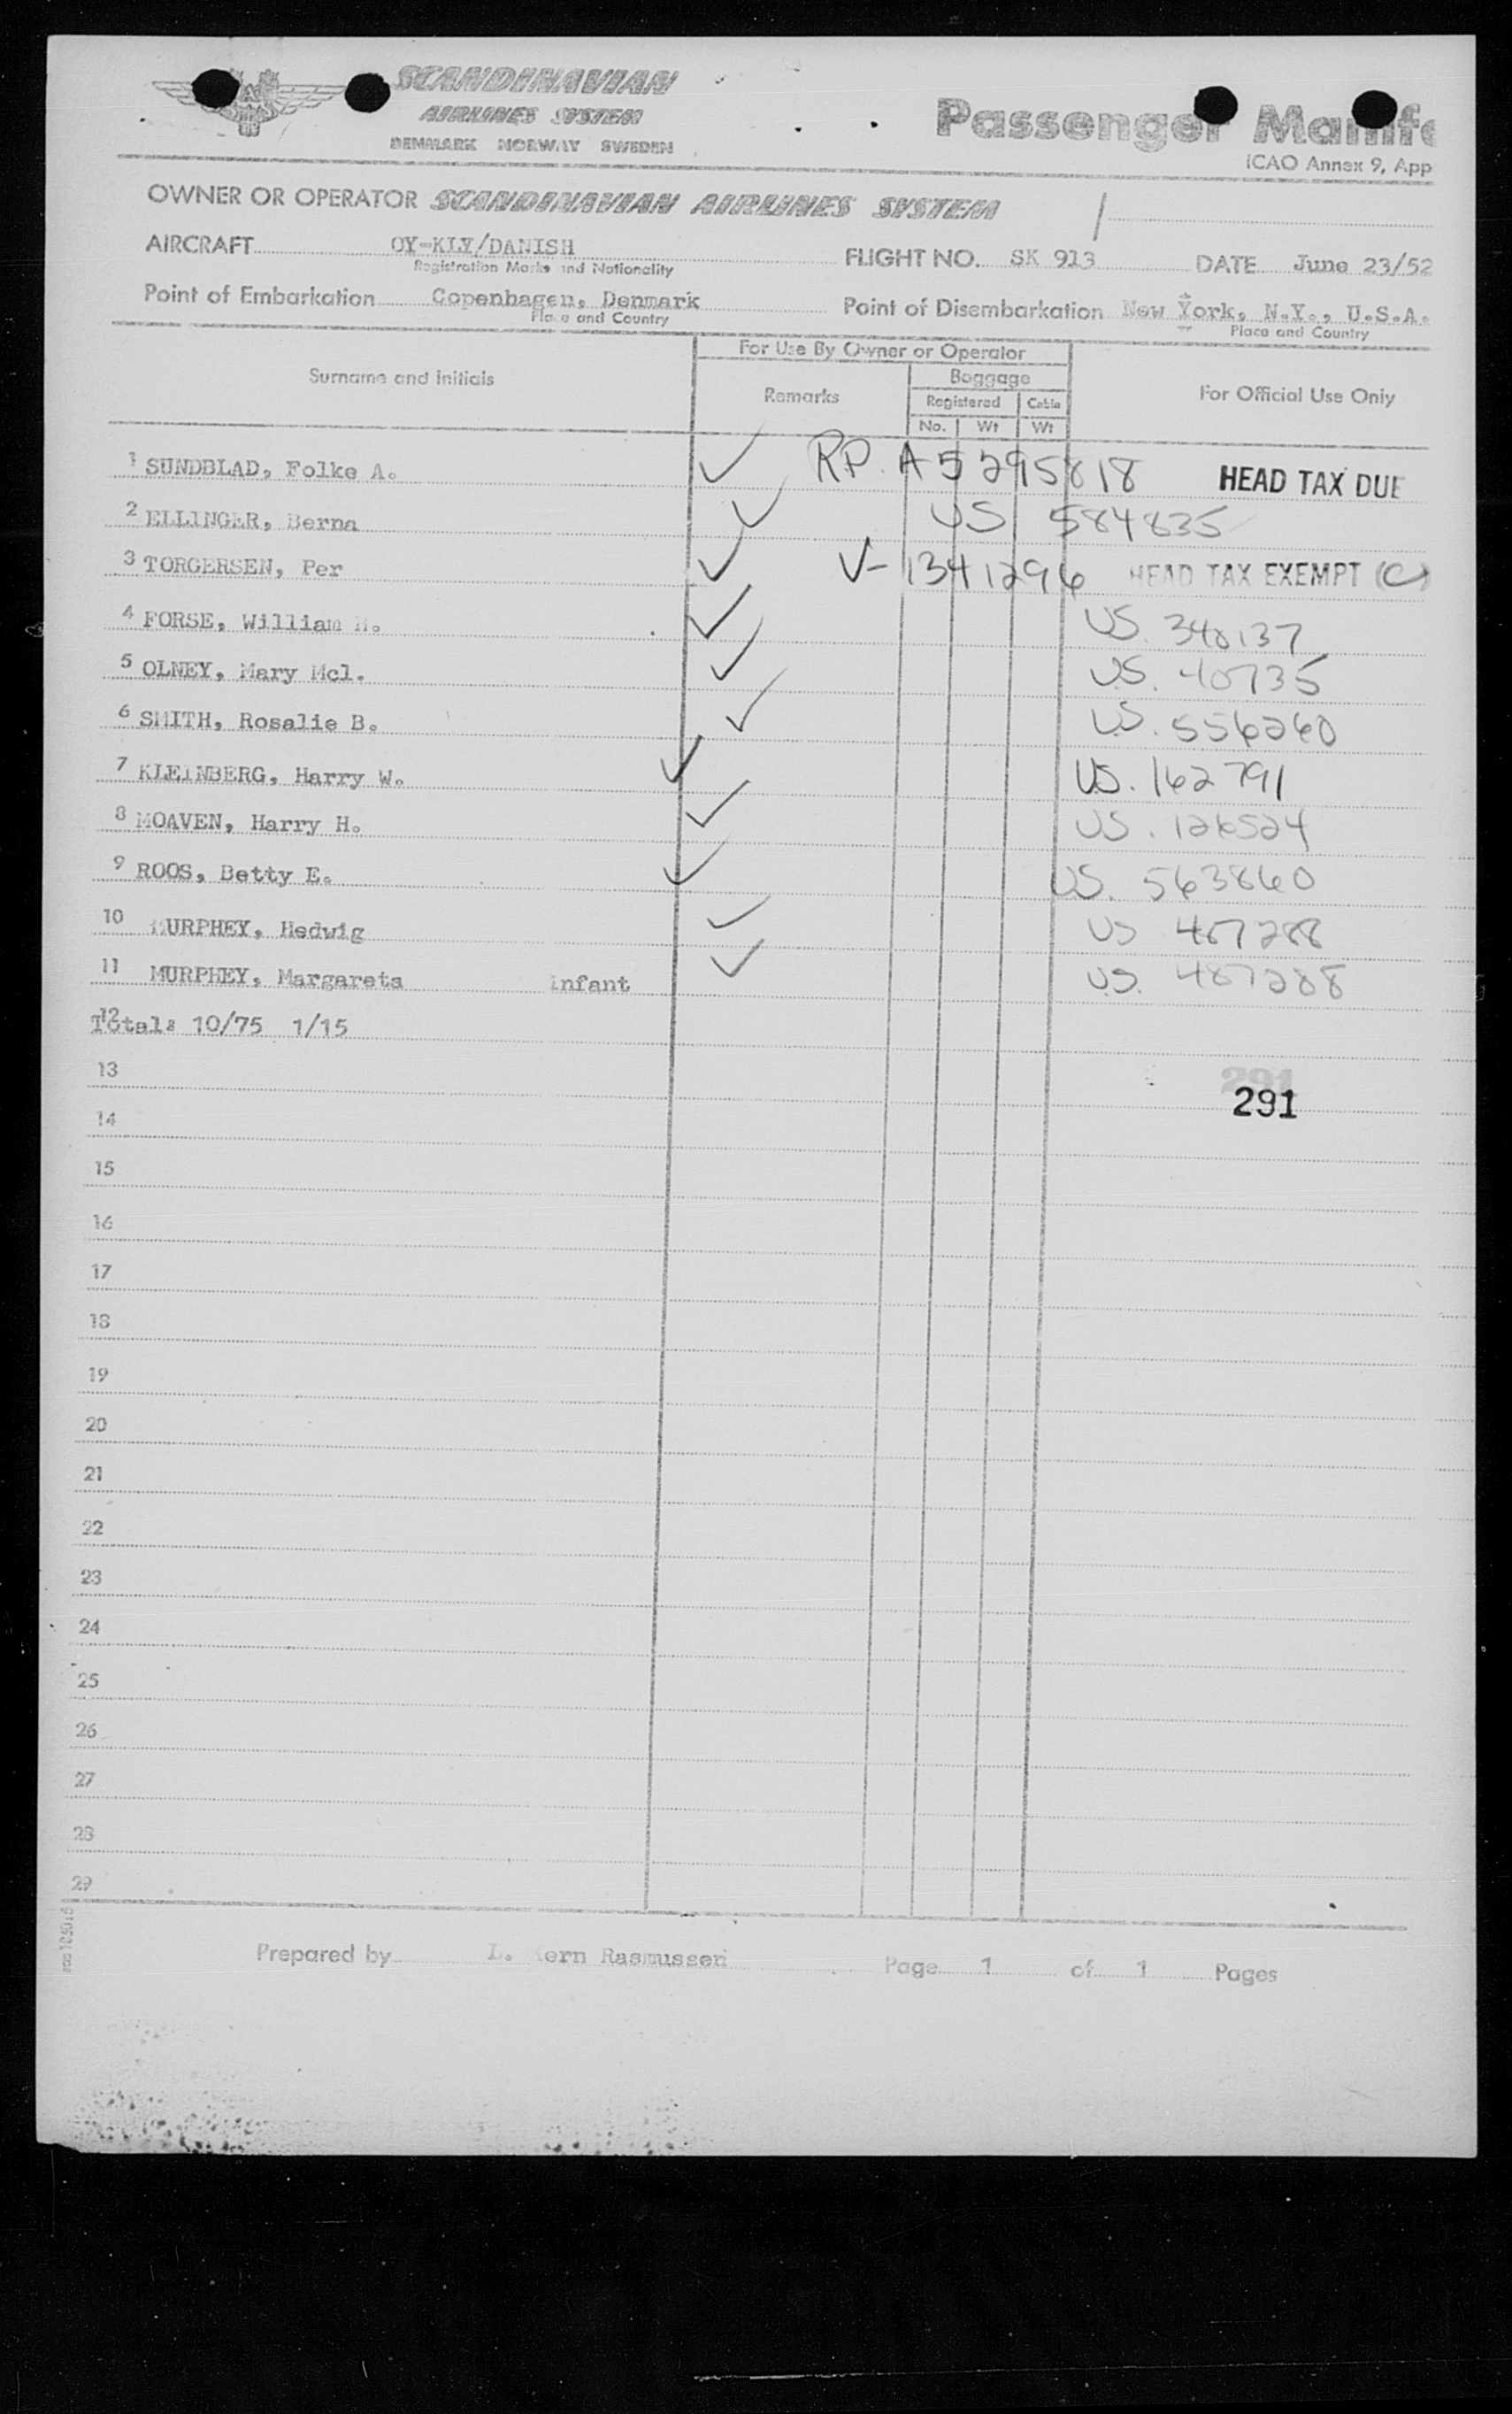 SCANDINAVIAN
AIRLINES SYSTEM
DENMARK NORWAY SWEDEN
Passenger Manife
ICAO Annex 9, App
OWNER OR OPERATOR SCANDINAVIAN AIRLINES SYSTEM
AIRCRAFT OY-KLY/DANISH FLIGHT NO. SK 913 DATE June 23/52
Registration Marks and Nationality
Point of Embarkation Copenhagen, Denmark Point of Disembarkation New York, N.Y., U.S.A.
Place and Country Place and Country
For Use By Owner or Operator
Surname and initials Remarks Baggage For Official Use Only
Registered Cabin
No. Wt Wt
1 SUNDBLAD, Folke A. ✓ RP. A5295818 HEAD TAX DUE
2 ELLINGER, Berna ✓ US 584835
3 TORGERSEN, Per ✓ V-1341296 HEAD TAX EXEMPT (C)
4 FORSE, William ✓ US. 348137
5 OLNEY, Mary Mcl. ✓ U.S. 40735
6 SMITH, Rosalie B. ✓ U.S. 556260
7 KLEINBERG, Harry W. ✓ US. 162791
8 MOAVEN, Harry H. ✓ US. 126524
9 ROOS, Betty E. ✓ US. 563860
10 MURPHEY, Hedwig ✓ US 487288
11 MURPHEY, Margareta Infant ✓ U.S. 487288
12
Total: 10/75 1/15
13
291
291
14
15
16
17
18
19
20
21
22
23
24
25
26
27
28
29
Prepared by L. Rasmussen Page 1 of 1 Pages